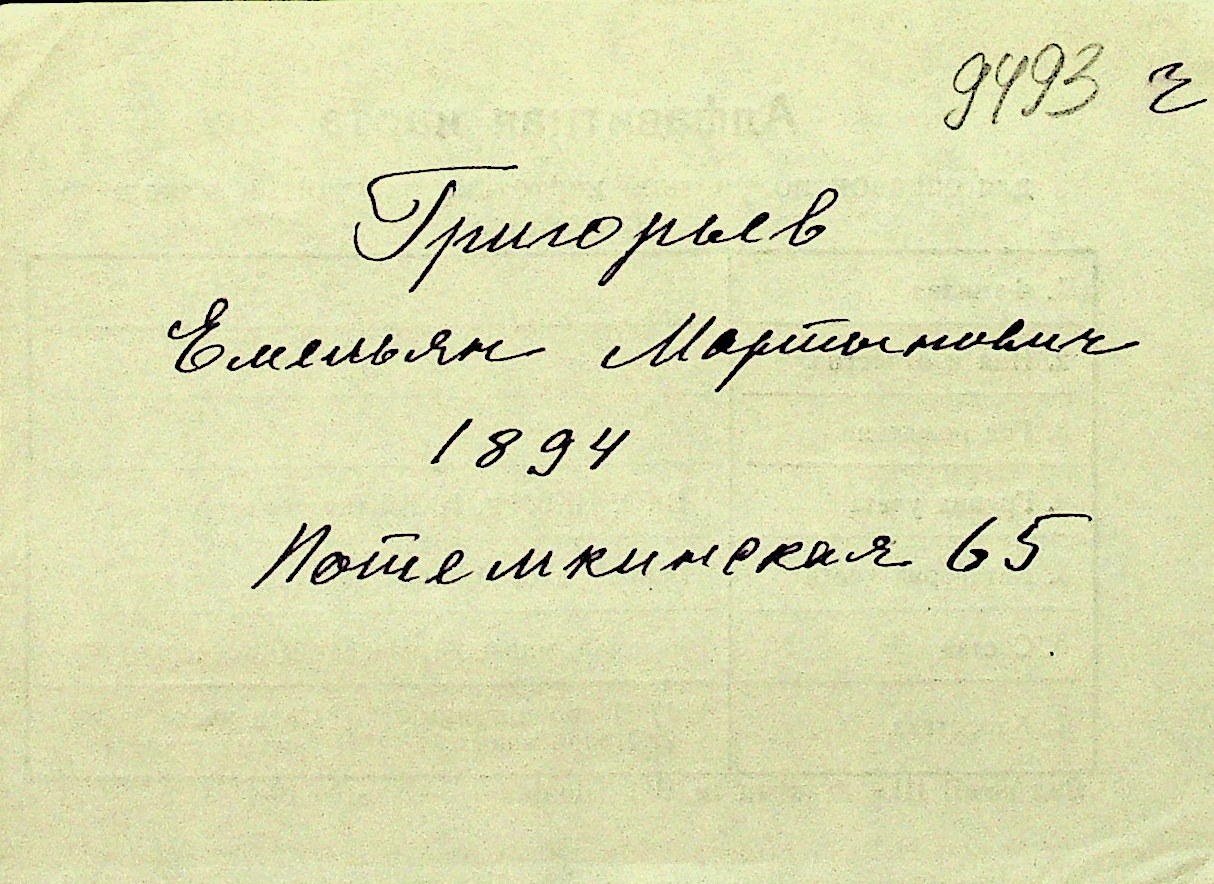 9493 г
Григорьев
Емельян Мартынович
1894
Потемкинская 65